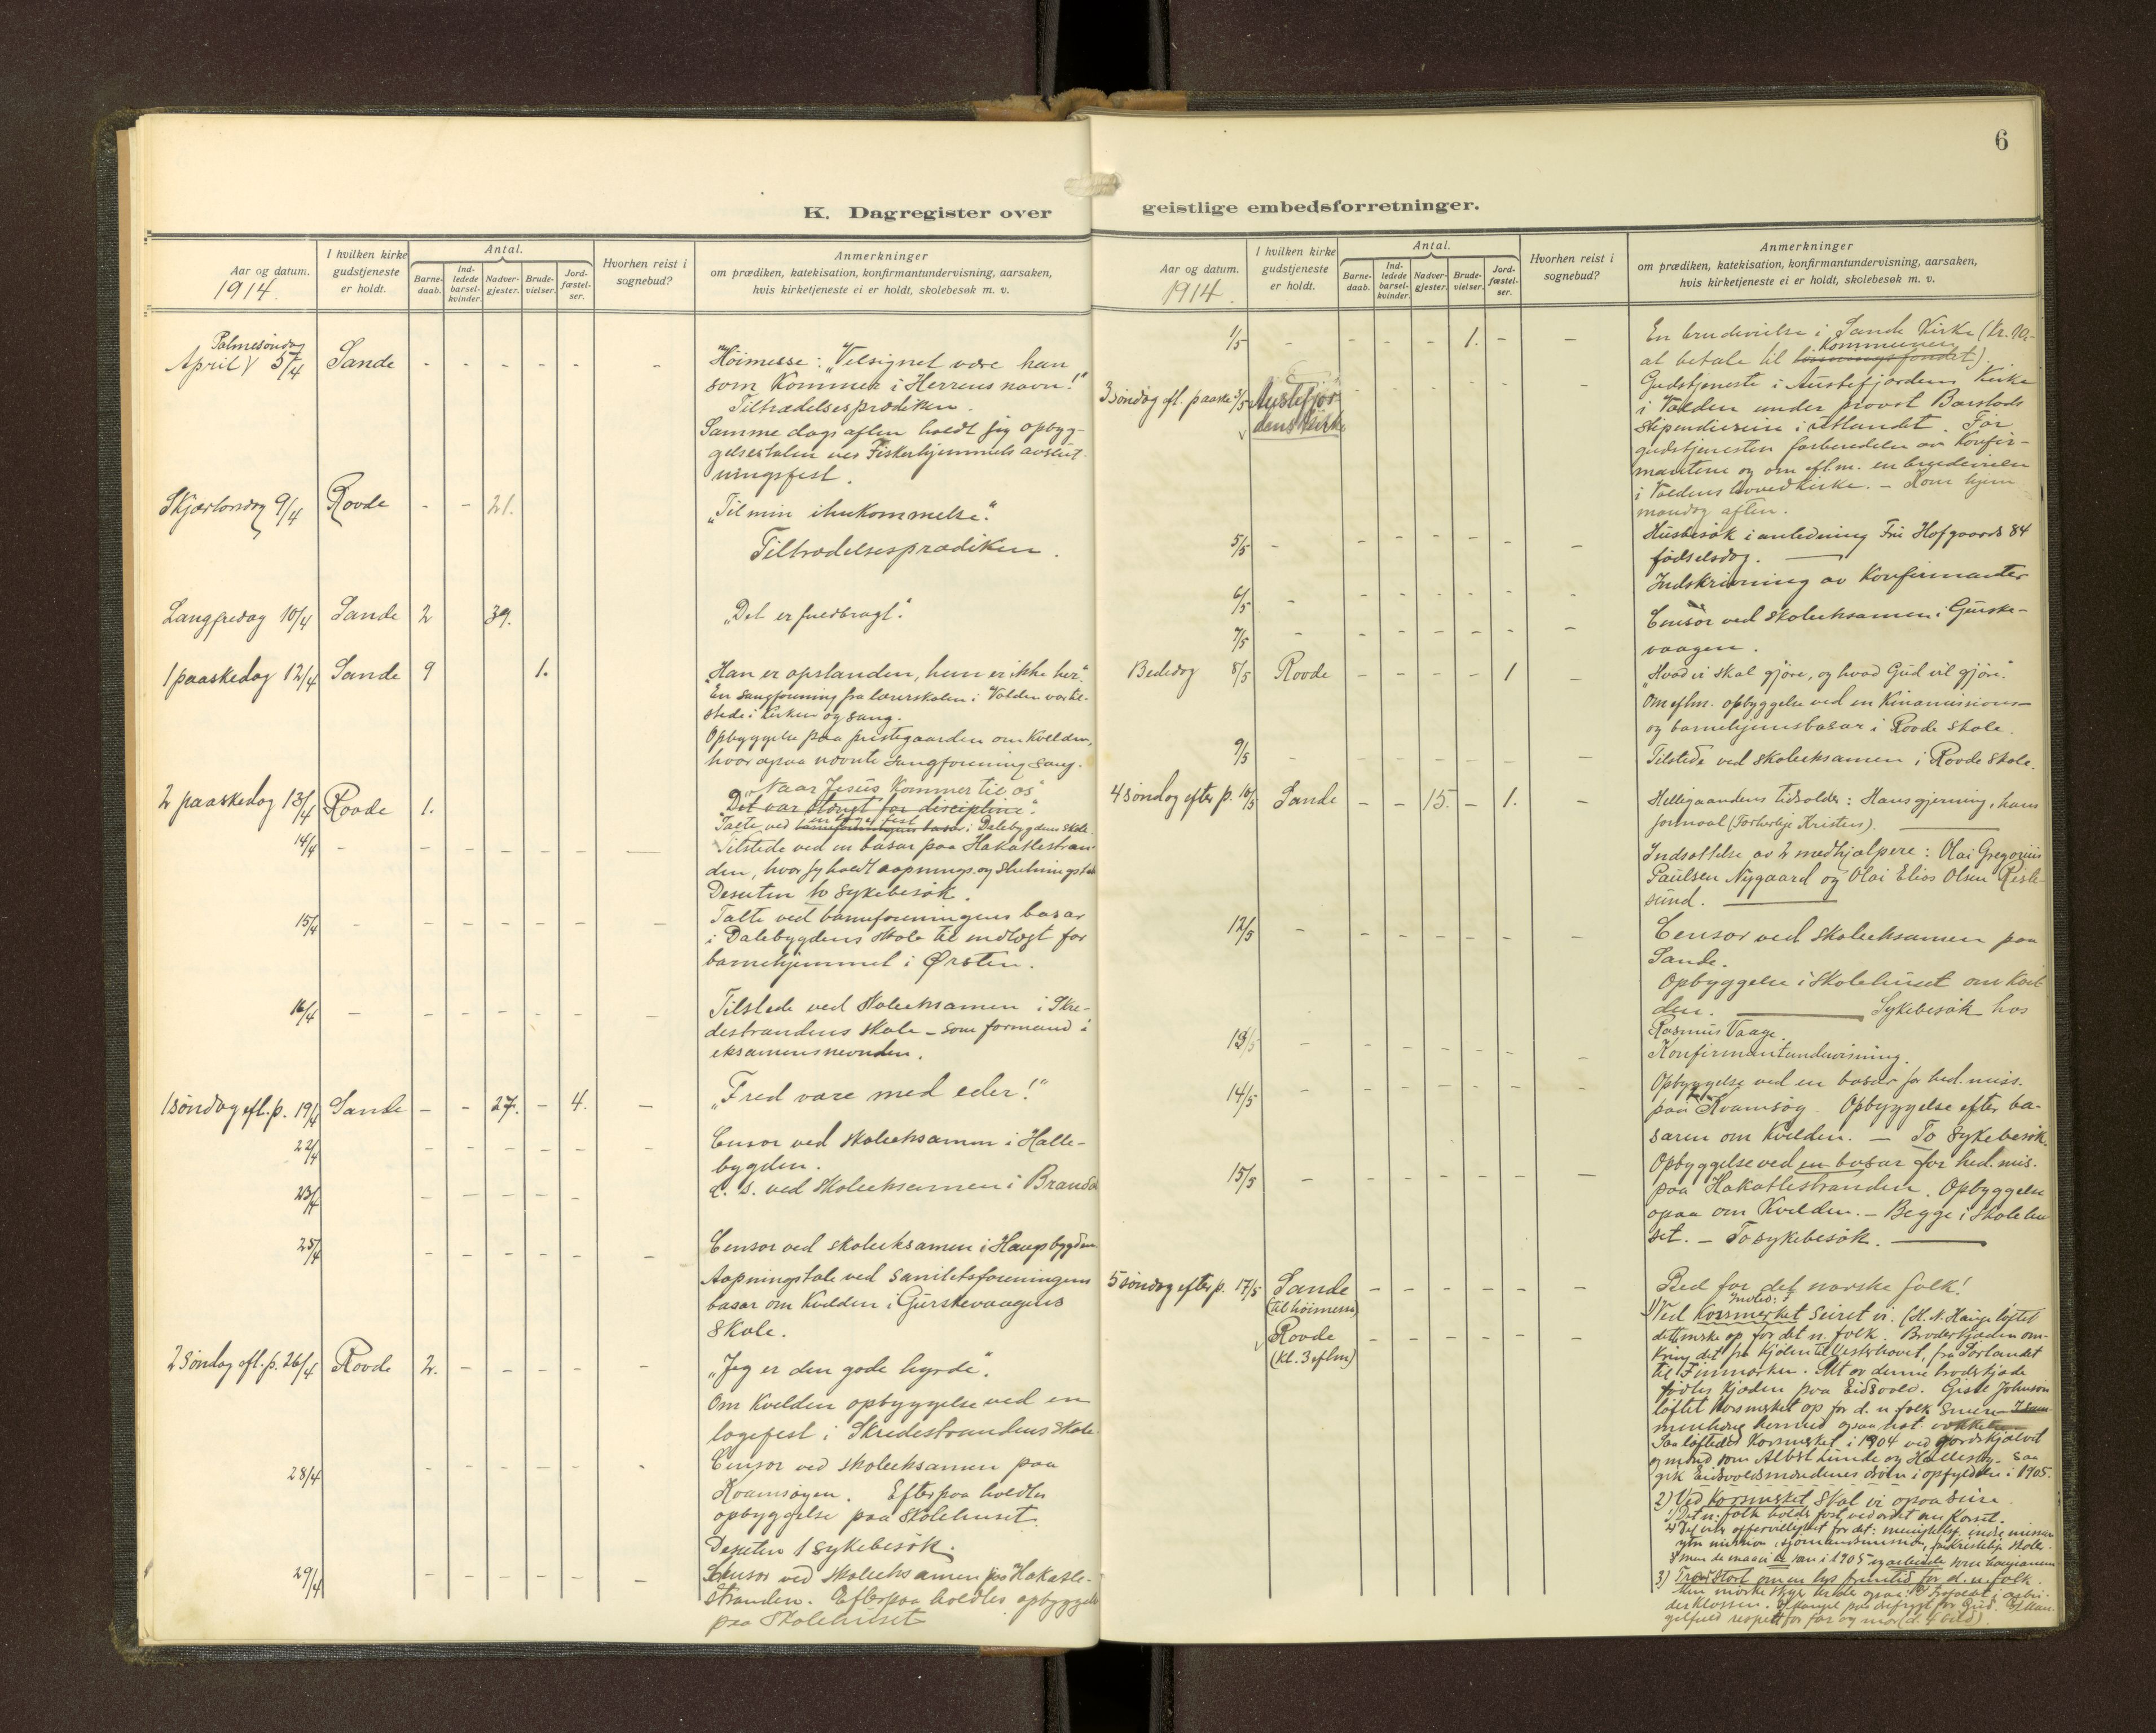 6
K. Dagregister over
geistlige embedsforretninger.
Aar og datum.
1914.
I hvilken kirke
gudstjeneste
er holdt.
Antal.
Barne-
daab.
Ind-
ledede
barsel-
kvinder.
Nadver-
gjester.
Brude-
vielser.
Jord-
fæstel-
ser.
Hvorhen reist i
sognebud?
Anmerkninger
om prædiken, katekisation, konfirmantundervisning, aarsaken,
hvis kirketjeneste ei er holdt, skolebesøk m. v.
Palmesøndag
April 5/4 Sande - - - - - -
Høimesse: "Velsignet være han
som kommer i Herrens navn!"
Tiltrædelsesprædiken.
Samme dags aften holdt jeg opbyg-
gelsestalen ved Fiskerhjemmets avslut-
ningsfest.
Skjærtorsdag 9/4 Rovde - - 21.
"Til min ihukommelse."
Tiltrædelsesprædiken.
Langfredag 10/4 Sande 2 39.
"Det er fuldbragt."
1 paaskedag 12/4 Sande 9 1.
"Han er opstanden, han er ikke her."
En sangforening fra lærerskolen i Volden var til-
stede i kirken og sang.
Opbyggelse paa prestegaarden om kvelden,
hvor ogsaa nævnte sangforening sang.
2 paaskedag 13/4 Rovde 1.
"Naar Jesus kommer til os"
"Det var stengt for disciplene."
en loge fest
Talte ved barneforeningens basar i Dalebygdens skole.
14/4 - - - - - - -
Tilstede ved en basar paa Hakallestran-
den, hvor jeg holdt aapnings og slutningstale
Desuten to sykebesøk.
15/4 - - - - - - -
Talte ved barneforeningens basar
i Dalebygdens skole til indtægt for
barnehjemmet i Ørsten.
16/4 - - - - - - -
Tilstede ved skoleeksamen i Skre-
destrandens skole - som formand i
eksamensnevnden.
1 søndag eft. p. 19/4 Sande - - 27. - 4. -
"Fred være med eder!"
22/4 - - - - - -
Censor ved skoleeksamen i Halle-
bygden.
23/4 - - - - -
d. s. ved skoleeksamen i Brandal
25/4 - - - - - -
Censor ved skoleeksamen i Haugsbygden.
Aapningstale ved sanitetsforeningens
basar om kvelden i Gurskevaagens
skole.
2 søndag eft. p. 26/4 Rovde 2. - - - - -
"Jeg er den gode hyrde."
Om kvelden opbyggelse ved en
logefest i Skredestrandens skole.
28/4 - - - - - -
Censor ved skoleeksamen paa
Kvamsøyen. Efterpaa holdtes
opbyggelse paa skolehuset.
Desuten 1 sykebesøk.
29/4 - - - - - -
Censor ved skoleeksamen paa Hakalle-
stranden. Efterpaa holdtes opbyggelse
paa skolehuset
Aar og datum.
1914.
I hvilken kirke
gudstjeneste
er holdt.
Antal.
Barne-
daab.
Ind-
ledede
barsel-
kvinder.
Nadver-
gjester.
Brude-
vielser.
Jord-
fæstel-
ser.
Hvorhen reist i
sognebud?
Anmerkninger
om prædiken, katekisation, konfirmantundervisning, aarsaken,
hvis kirketjeneste ei er holdt, skolebesøk m. v.
1/5 - - - - 1. - -
En brudevielse i Sande kirke (kr. 10,-
kommunen
at betale til).
3 søndag eft. paaske 3/5 Austefjor-
dens kirke - - - - - -
Gudstjeneste i Austefjordens kirke
i Volden under provst Barstads
stipendiereise i utlandet. Før
gudstjenesten forberedelse av konfir-
mantene og om eftm. en brudevielse
i Voldens hovedkirke. - Kom hjem
mandag aften.
5/5 - - - - - - -
Husbesøk i anledning Fru Hofgaards 84
fødselsdag.
6/5 - - - - - - -
Indskrivning av konfirmanter
7/5 - - - - - - -
Censor ved skoleeksamen i Gurske-
vaagen.
Bededag 8/5 Rovde - - - - 1 -
"Hvad vi skal gjøre, og hvad Gud vil gjøre."
Om eftm. opbyggelse ved en Kinamissions-
og barnehjemsbasar i Rovde skole.
9/5 - - - - - - -
Tilstede ved skoleeksamen i Rovde skole.
4 søndag efter p. 10/5 Sande - - 15. - 1. -
Helligaandens tidsalder: Hans gjerning, hans
formaal (Forherlige Kristus).
Indsættelse av 2 medhjælpere: Olai Gregorius
Paulsen Nygaard og Olai Elias Olsen Riste-
sund.
12/5 - - - - - - -
Censor ved skoleeksamen paa
Sande.
Opbyggelse i skolehuset om kvel-
den. Sykebesøk hos
Rasmus Vaage.
13/5 - - - - - - -
Konfirmantundervisning.
14/5 - - - - - - -
Opbyggelse ved en basar for hed. miss.
paa Kvamsøy. Opbyggelse efter ba-
saren om kvelden. - To sykebesøk.
15/5 - - - - - - -
Opbyggelse ved en basar for hed. mis.
paa Hakallestranden. Opbyggelse
ogsaa om kvelden. - Begge i skolehu-
set. - To sykebesøk.
5 søndag efter p. 17/5 Sande - - - - - -
(til høimesse)
Rovde - - - - - -
(kl. 3 eftm)
Bed for det norske folk!
Indled:
1) Ved korsmerket seiret vi. (H. N. Hauge løftet
dette merke op for det n. folk. Broderkjæden om-
kring det fra Kjølen til Vesterhavet, fra Sørlandet
til Finmarken. Alt av denne broderkjæde
fødtes kjæden paa Eidsvold. Gisle Johnson
løftet korsmerket op for d. n. folk senere
Saa løftedes korsmerket i 1904 ved
mænd som Albert Lunde og Hallesby. Saa
gik Eidsvoldsmændenes drøm i opfyldelse i 1905.
2) Ved korsmerket skal vi ogsaa seire.
1) Det n. folk holde fast ved ordet om korset.
3)